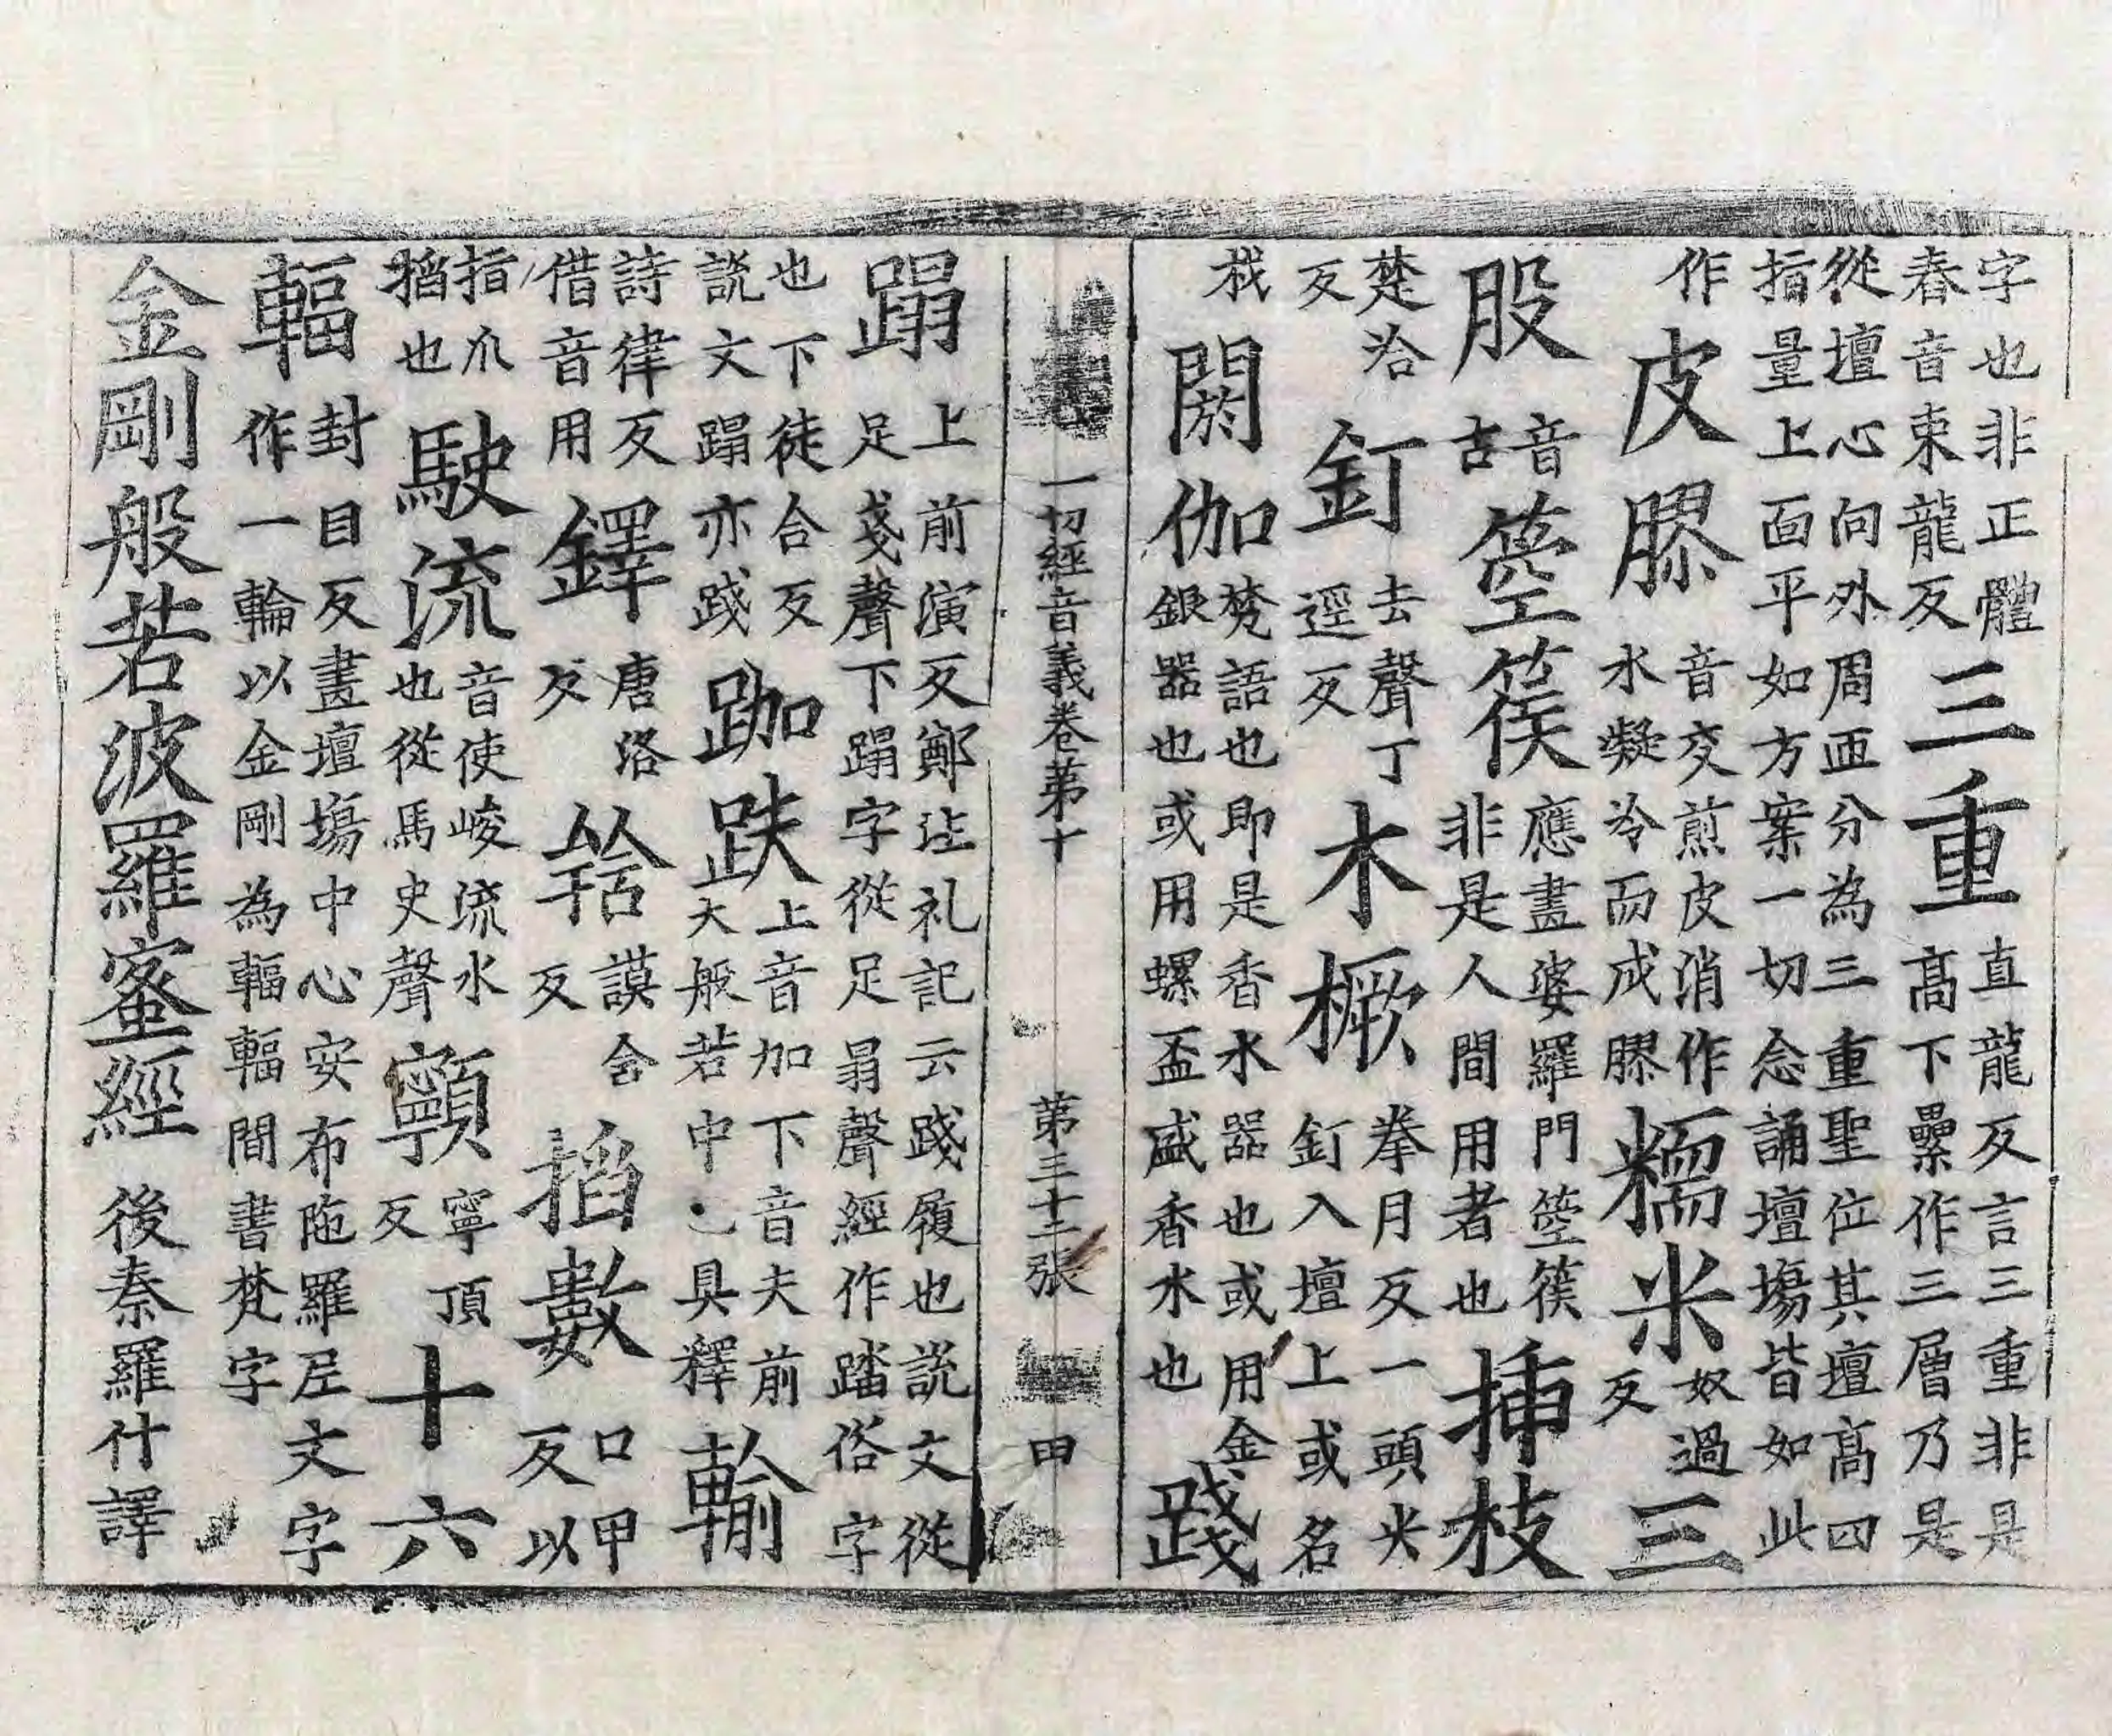 字也非正體
春音束龍反
三重
直龍反言三重非是
高下壘作三層乃是
從壇心向外周匝分為三重聖位其壇高四
指量上面平如方案一切念誦壇場皆如此
作
皮膠
音交煎皮消作
水凝冷而成膠
糯米
奴過
反
三
股
音
古
箜篌
應畫婆羅門箜篌
非是人間用者也
揷枝
楚洽
反
釘
去聲丁
逕反
木橛
拳月反一頭尖
釘入壇上或名
栈
閼伽
梵語也即是香水器也或用金
銀器也或用螺盃盛香水也
踐
一切經音義卷第十
第三十二張
甲
蹋
上前演反鄭注礼記云踐履也說文從
足戔聲下蹋字從足弱聲經作踏俗字
也下徒合反
說文蹋亦踐
跏趺
上音加下音夫前
大般若中已具釋
輸
詩律反
借音用
鐸
唐洛
反
捨
謨舍
反
搯數
口甲
反以
指爪
搯也
駛流
音使峻流水
也從馬史聲
顊
寧頂
反
十六
輻
封目反畫壇場中心安布陁羅尼文字
作一輪以金剛為輻輻間書梵字
金剛般若波羅蜜經 後秦羅什譯